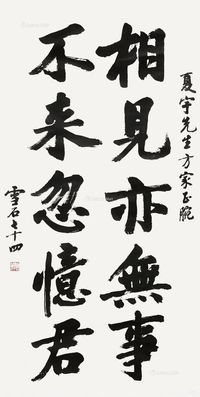 夏宇先生方家正腕
相見亦無事
不来忽憶君
雪石七十四